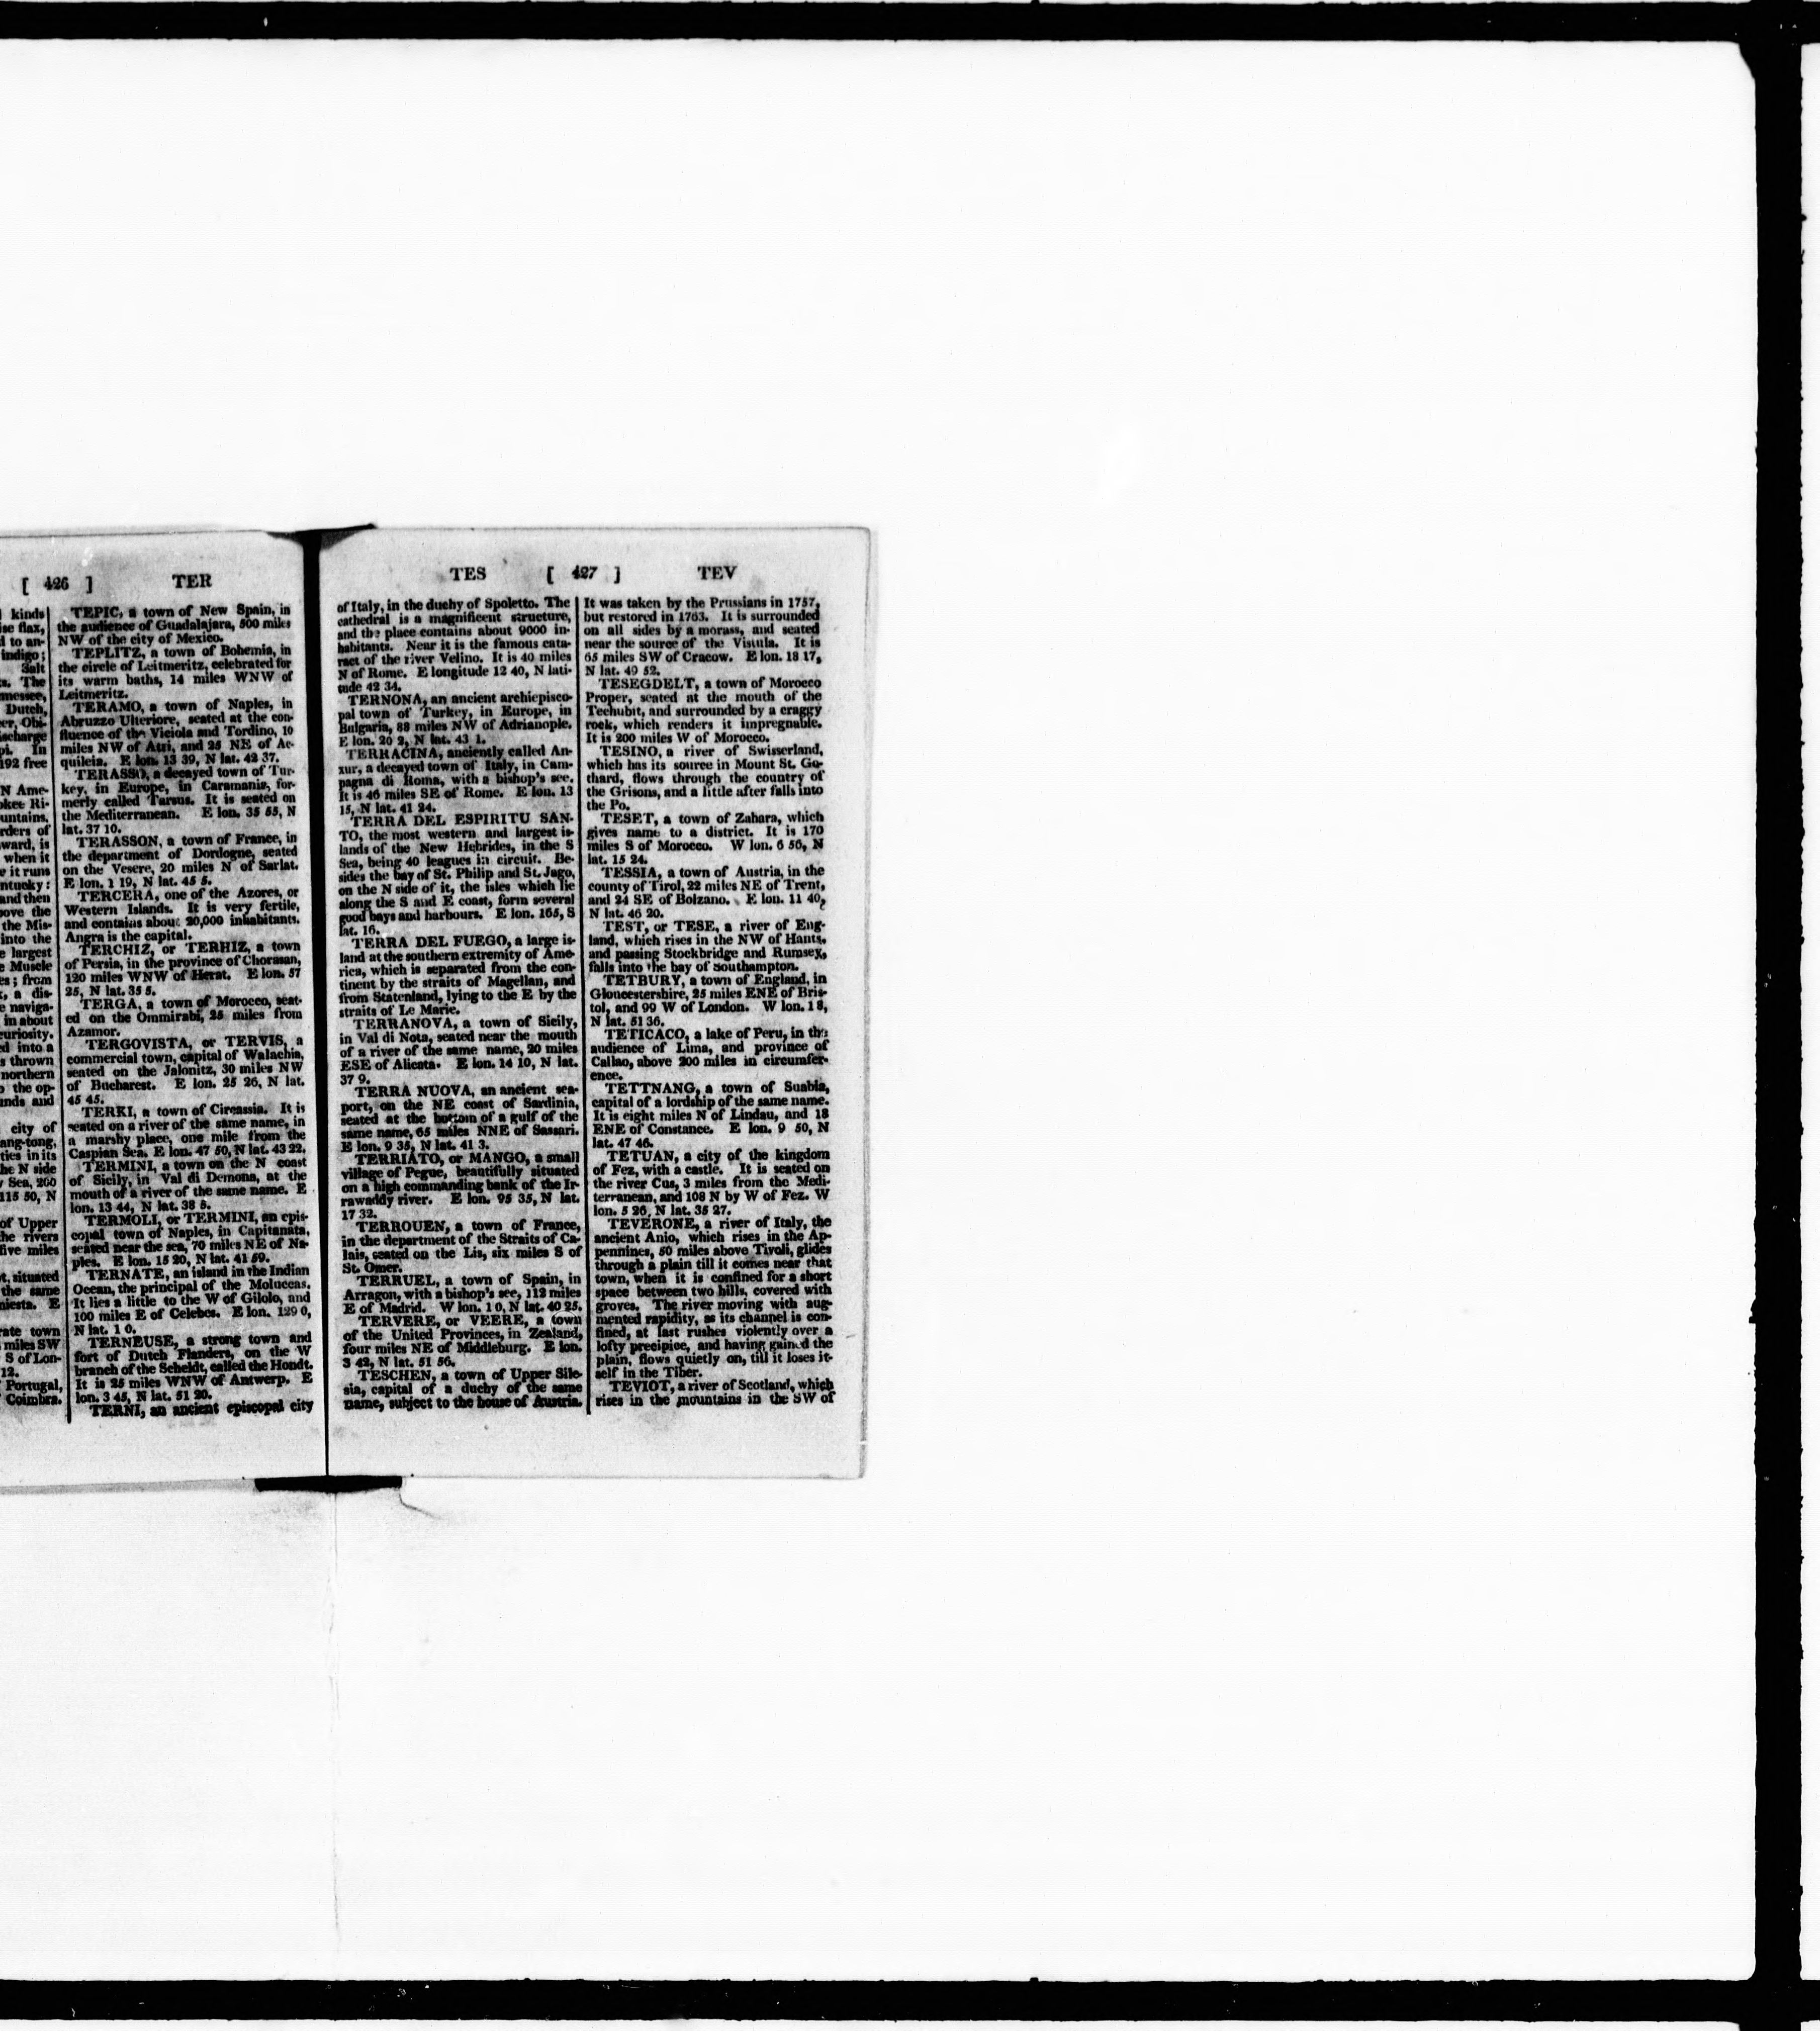 [ 426 ] TER
kinds
ise flax,
d to an-
indigo;
Salt
s. The
messee,
Dutch,
er, Obi-
ischarge
pi. In
192 free
N Ame-
okee Ri-
untains,
rders of
ward, is
when it
e it runs
ntucky:
and then
ove the
the Mis-
into the
e largest
e Muscle
es; from
, a dis-
e naviga-
in about
curiosity.
ed into a
s thrown
northern
o the op-
unds and
city of
ang-tong,
ties in its
he N side
Sea, 200
115 50, N
of Upper
he rivers
five miles
t, situated
the same
niesta. E
rate town
miles SW
S of Lon-
12.
Portugal,
Coimbra.
TEPIC, a town of New Spain, in
the audience of Guadalajara, 500 miles
NW of the city of Mexico.
TEPLITZ, a town of Bohemia, in
the circle of Leitmeritz, celebrated for
its warm baths, 14 miles WNW of
Leitmeritz.
TERAMO, a town of Naples, in
Abruzzo Ulteriore, seated at the con-
fluence of the Viciola and Tordino, 10
miles NW of Atri, and 25 NE of Ac-
quileia. E lon. 13 39, N lat. 42 37.
TERASSO, a decayed town of Tur-
key, in Europe, in Caramania, for-
merly called Tarsus. It is seated on
the Mediterranean. E lon. 35 55, N
lat. 37 10.
TERASSON, a town of France, in
the department of Dordogne, seated
on the Vesere, 20 miles N of Sarlat.
E lon. 1 19, N lat. 45 5.
TERCERA, one of the Azores, or
Western Islands. It is very fertile,
and contains about 20,000 inhabitants.
Angra is the capital.
TERCHIZ, or TERHIZ, a town
of Persia, in the province of Chorasan,
120 miles WNW of Herat. E lon. 57
25, N lat. 35 5.
TERGA, a town of Morocco, seat-
ed on the Ommirabi, 25 miles from
Azamor.
TERGOVISTA, or TERVIS, a
commercial town, capital of Walachia,
seated on the Jalonitz, 30 miles NW
of Bucharest. E lon. 25 26, N lat.
45 45.
TERKI, a town of Circassia. It is
seated on a river of the same name, in
a marshy place, one mile from the
Caspian Sea. E lon. 47 50, N lat. 43 22.
TERMINI, a town on the N coast
of Sicily, in Val di Demona, at the
mouth of a river of the same name. E
lon. 13 44, N lat. 38 5.
TERMOLI, or TERMINI, an epis-
copal town of Naples, in Capitanata,
seated near the sea, 70 miles NE of Na-
ples. E lon. 15 20, N lat. 41 59.
TERNATE, an island in the Indian
Ocean, the principal of the Moluccas.
It lies a little to the W of Gilolo, and
100 miles E of Celebes. E lon. 129 0,
N lat. 1 0.
TERNEUSE, a strong town and
fort of Dutch Flanders, on the W
branch of the Scheldt, called the Hondt.
It is 25 miles WNW of Antwerp. E
lon. 3 45, N lat. 51 20.
TERNI, an ancient episcopal city
TES [ 427 ] TEV
of Italy, in the duchy of Spoletto. The
cathedral is a magnificent structure,
and the place contains about 9000 in-
habitants. Near it is the famous cata-
ract of the river Velino. It is 40 miles
N of Rome. E longitude 12 40, N lati-
tude 42 34.
TERNONA, an ancient archiepisco-
pal town of Turkey, in Europe, in
Bulgaria, 88 miles NW of Adrianople.
E lon. 20 2, N lat. 43 1.
TERRACINA, anciently called An-
xur, a decayed town of Italy, in Cam-
pagna di Roma, with a bishop's see.
It is 46 miles SE of Rome. E lon. 13
15, N lat. 41 24.
TERRA DEL ESPIRITU SAN-
TO, the most western and largest is-
lands of the New Hebrides, in the S
Sea, being 40 leagues in circuit. Be-
sides the bay of St. Philip and St. Jago,
on the N side of it, the isles which lie
along the S and E coast, form several
good bays and harbours. E lon. 165, S
lat. 16.
TERRA DEL FUEGO, a large is-
land at the southern extremity of Ame-
rica, which is separated from the con-
tinent by the straits of Magellan, and
from Statenland, lying to the E by the
straits of Le Marie.
TERRANOVA, a town of Sicily,
in Val di Nota, seated near the mouth
of a river of the same name, 20 miles
ESE of Alicata. E lon. 14 10, N lat.
37 9.
TERRA NUOVA, an ancient sea-
port, on the NE coast of Sardinia,
seated at the bottom of a gulf of the
same name, 65 miles NNE of Sassari.
E lon. 9 35, N lat. 41 3.
TERRIATO, or MANGO, a small
village of Pegue, beautifully situated
on a high commanding bank of the Ir-
rawaddy river. E lon. 95 35, N lat.
17 32.
TERROUEN, a town of France,
in the department of the Straits of Ca-
lais, seated on the Lis, six miles S of
St. Omer.
TERRUEL, a town of Spain, in
Arragon, with a bishop's see, 112 miles
E of Madrid. W lon. 1 0, N lat. 40 25.
TERVERE, or VEERE, a town
of the United Provinces, in Zealand,
four miles NE of Middleburg. E lon.
3 42, N lat. 51 56.
TESCHEN, a town of Upper Sile-
sia, capital of a duchy of the same
name, subject to the house of Austria.
It was taken by the Prussians in 1757,
but restored in 1763. It is surrounded
on all sides by a morass, and seated
near the source of the Vistula. It is
65 miles SW of Cracow. E lon. 18 17,
N lat. 49 52.
TESEGDELT, a town of Morocco
Proper, seated at the mouth of the
Techubit, and surrounded by a craggy
rock, which renders it impregnable.
It is 200 miles W of Morocco.
TESINO, a river of Swisserland,
which has its source in Mount St. Go-
thard, flows through the country of
the Grisons, and a little after falls into
the Po.
TESET, a town of Zahara, which
gives name to a district. It is 170
miles S of Morocco. W lon. 6 56, N
lat. 15 24.
TESSIA, a town of Austria, in the
county of Tirol, 22 miles NE of Trent,
and 24 SE of Bolzano. E lon. 11 40,
N lat. 46 20.
TEST, or TESE, a river of Eng-
land, which rises in the NW of Hants,
and passing Stockbridge and Rumsey,
falls into the bay of Southampton.
TETBURY, a town of England, in
Gloucestershire, 25 miles ENE of Bris-
tol, and 99 W of London. W lon. 1 8,
N lat. 51 36.
TETICACO, a lake of Peru, in the
audience of Lima, and province of
Callao, above 200 miles in circumfer-
ence.
TETTNANG, a town of Suabia,
capital of a lordship of the same name.
It is eight miles N of Lindau, and 18
ENE of Constance. E lon. 9 50, N
lat. 47 46.
TETUAN, a city of the kingdom
of Fez, with a castle. It is seated on
the river Cus, 3 miles from the Medi-
terranean, and 108 N by W of Fez. W
lon. 5 26, N lat. 35 27.
TEVERONE, a river of Italy, the
ancient Anio, which rises in the Ap-
pennines, 50 miles above Tivoli, glides
through a plain till it comes near that
town, when it is confined for a short
space between two hills, covered with
groves. The river moving with aug-
mented rapidity, as its channel is con-
fined, at last rushes violently over a
lofty precipice, and having gained the
plain, flows quietly on, till it loses it-
self in the Tiber.
TEVIOT, a river of Scotland, which
rises in the mountains in the SW of